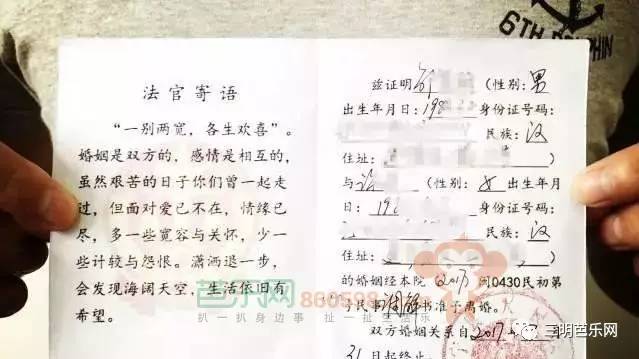 6TH DOLPHIN
法官寄语
“一别两宽，各生欢喜”。
婚姻是双方的，感情是相互的，
虽然艰苦的日子你们曾一起走
过，但面对爱已不在，情缘已
尽，多一些宽容与关怀，少一
些计较与怨恨。潇洒退一步，
会发现海阔天空，生活依旧有
希望。
兹证明 （性别：男
出生年月日：198 身份证号码：
民族：汉
住址： ）
与 （性别：女 出生年月
日：198 身份证号码：
民族：汉
住址： ）
的婚姻经本院（2017）闽0430民初第
号民事调解书准予离婚。
双方婚姻关系自2017年
31日起终止
芭乐网
扒一扒身边事 扯一扯生活乐
三明芭乐网